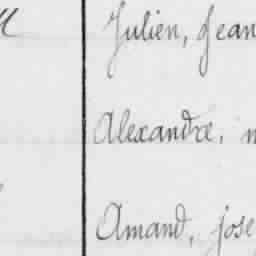 Julien, Jean
Alexandre,
Amand, jose